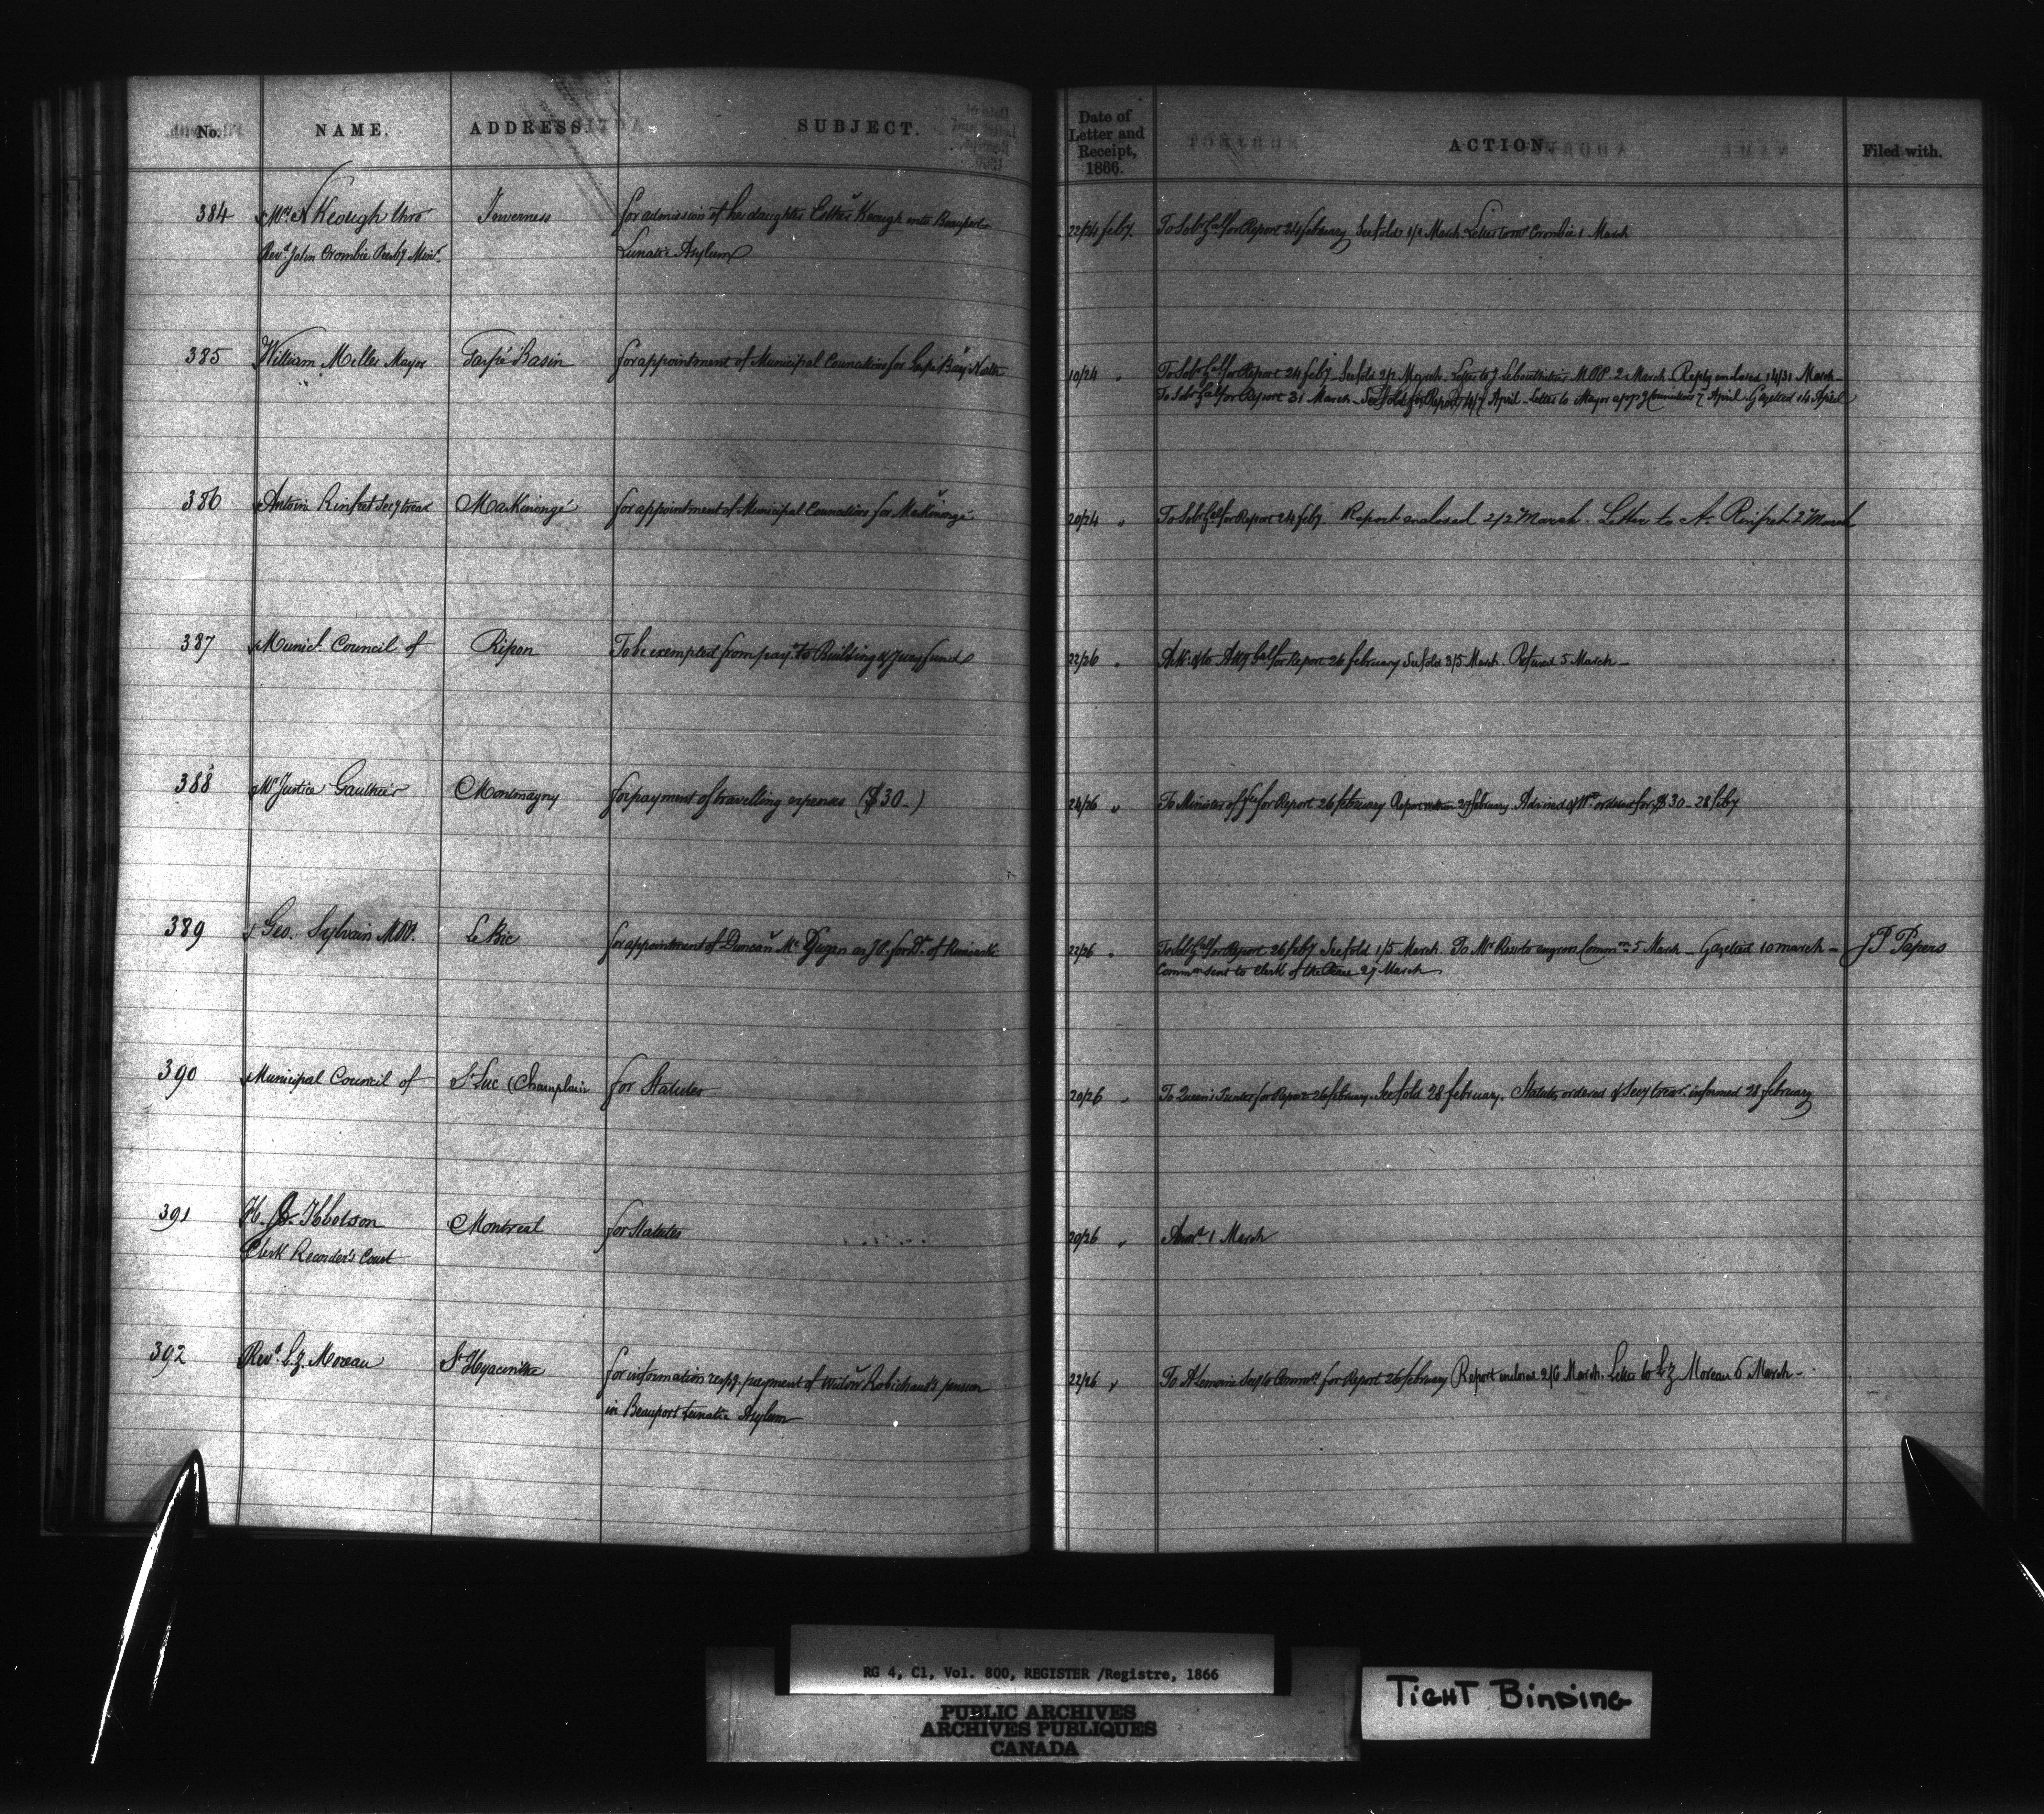 No.
NAME.
ADDRESS.
SUBJECT.
Date of
Letter and
Receipt,
1866.
ACTION.
Filed with.
384
Mrs N Keough thro'
Inverness
for admission of her daughter Esther Keough into Beauport
22/24 feby.
To Solr Genl for Report 24 february See fold 1/1 March Letter to Crombie 1 March
Revd John Crombie Presby Minr.
Lunatic Asylum
385
William Miller Mayor
Gaspé Basin
for appointment of Municipal Councillors for Gaspé Bay North
10/24 "
To Solr Genl for Report 24 feby. See fold 2/2 March. Letter to J Lebouthillier MPP 2 March. Reply enclosed 14/31 March
To Solr Genl for Report 31 March See fold for Report 4/7 April - Letter to Mayor appg Councillors 7 April. Gazetted 14 April
386
Antoine Rinfret Secy treas
Maskinongé
for appointment of Municipal Councillors for Maskinongé
20/24 "
To Solr Genl for Report 24 feby. Report enclosed 2/2 March. Letter to A. Rinfret 2 March
387
Munici. Council of
Ripon
To be exempted from payt to Building & Jury fund
22/26 "
Ack: & to Atty Genl for Report 26 february See fold 3/5 March. Refused 5 March
388
Mr Justice Gauthier
Montmagny
for payment of travelling expenses ($30-)
24/26 "
To Minister of fce for Report 26 february Report 27 february Advised of Wt ordered for $30 - 28 feby
389
Geo. Sylvain MPP.
Le Bic
for appointment of Duncan Mc Dugan as JP. for Dt. of Rimouski
22/26 "
To Sol Genl for Report 26 feby See fold 1/5 March. To Mr Ross to engross Commn 5 March - Gazetted 10 march -
J P Papers
Commn sent to Clerk of the Peace 27 March
390
Municipal Council of
St Luc (Champlain
for Statutes
20/26 "
To Queen's Printer for Report 26 february. See fold 28 february. Statutes ordered & Secy treas. informed 28 february
391
H. J. Ibbotson
Montreal
for Statutes
20/26 "
Answd 1 March
Clerk Recorder's Court
392
Revd L. Z. Moreau
St Hyacinthe
for information respg. payment of Widow Robichaud's pension
22/26 "
To A Lemoine Secy to Commrs for Report 26 february Report enclosed 2/6 March. Letter to L Z Moreau 6 March -
in Beauport Lunatic Asylum
RG 4, C1, Vol. 800, REGISTER /Registre, 1866
TIGHT BINDING
PUBLIC ARCHIVES
ARCHIVES PUBLIQUES
CANADA